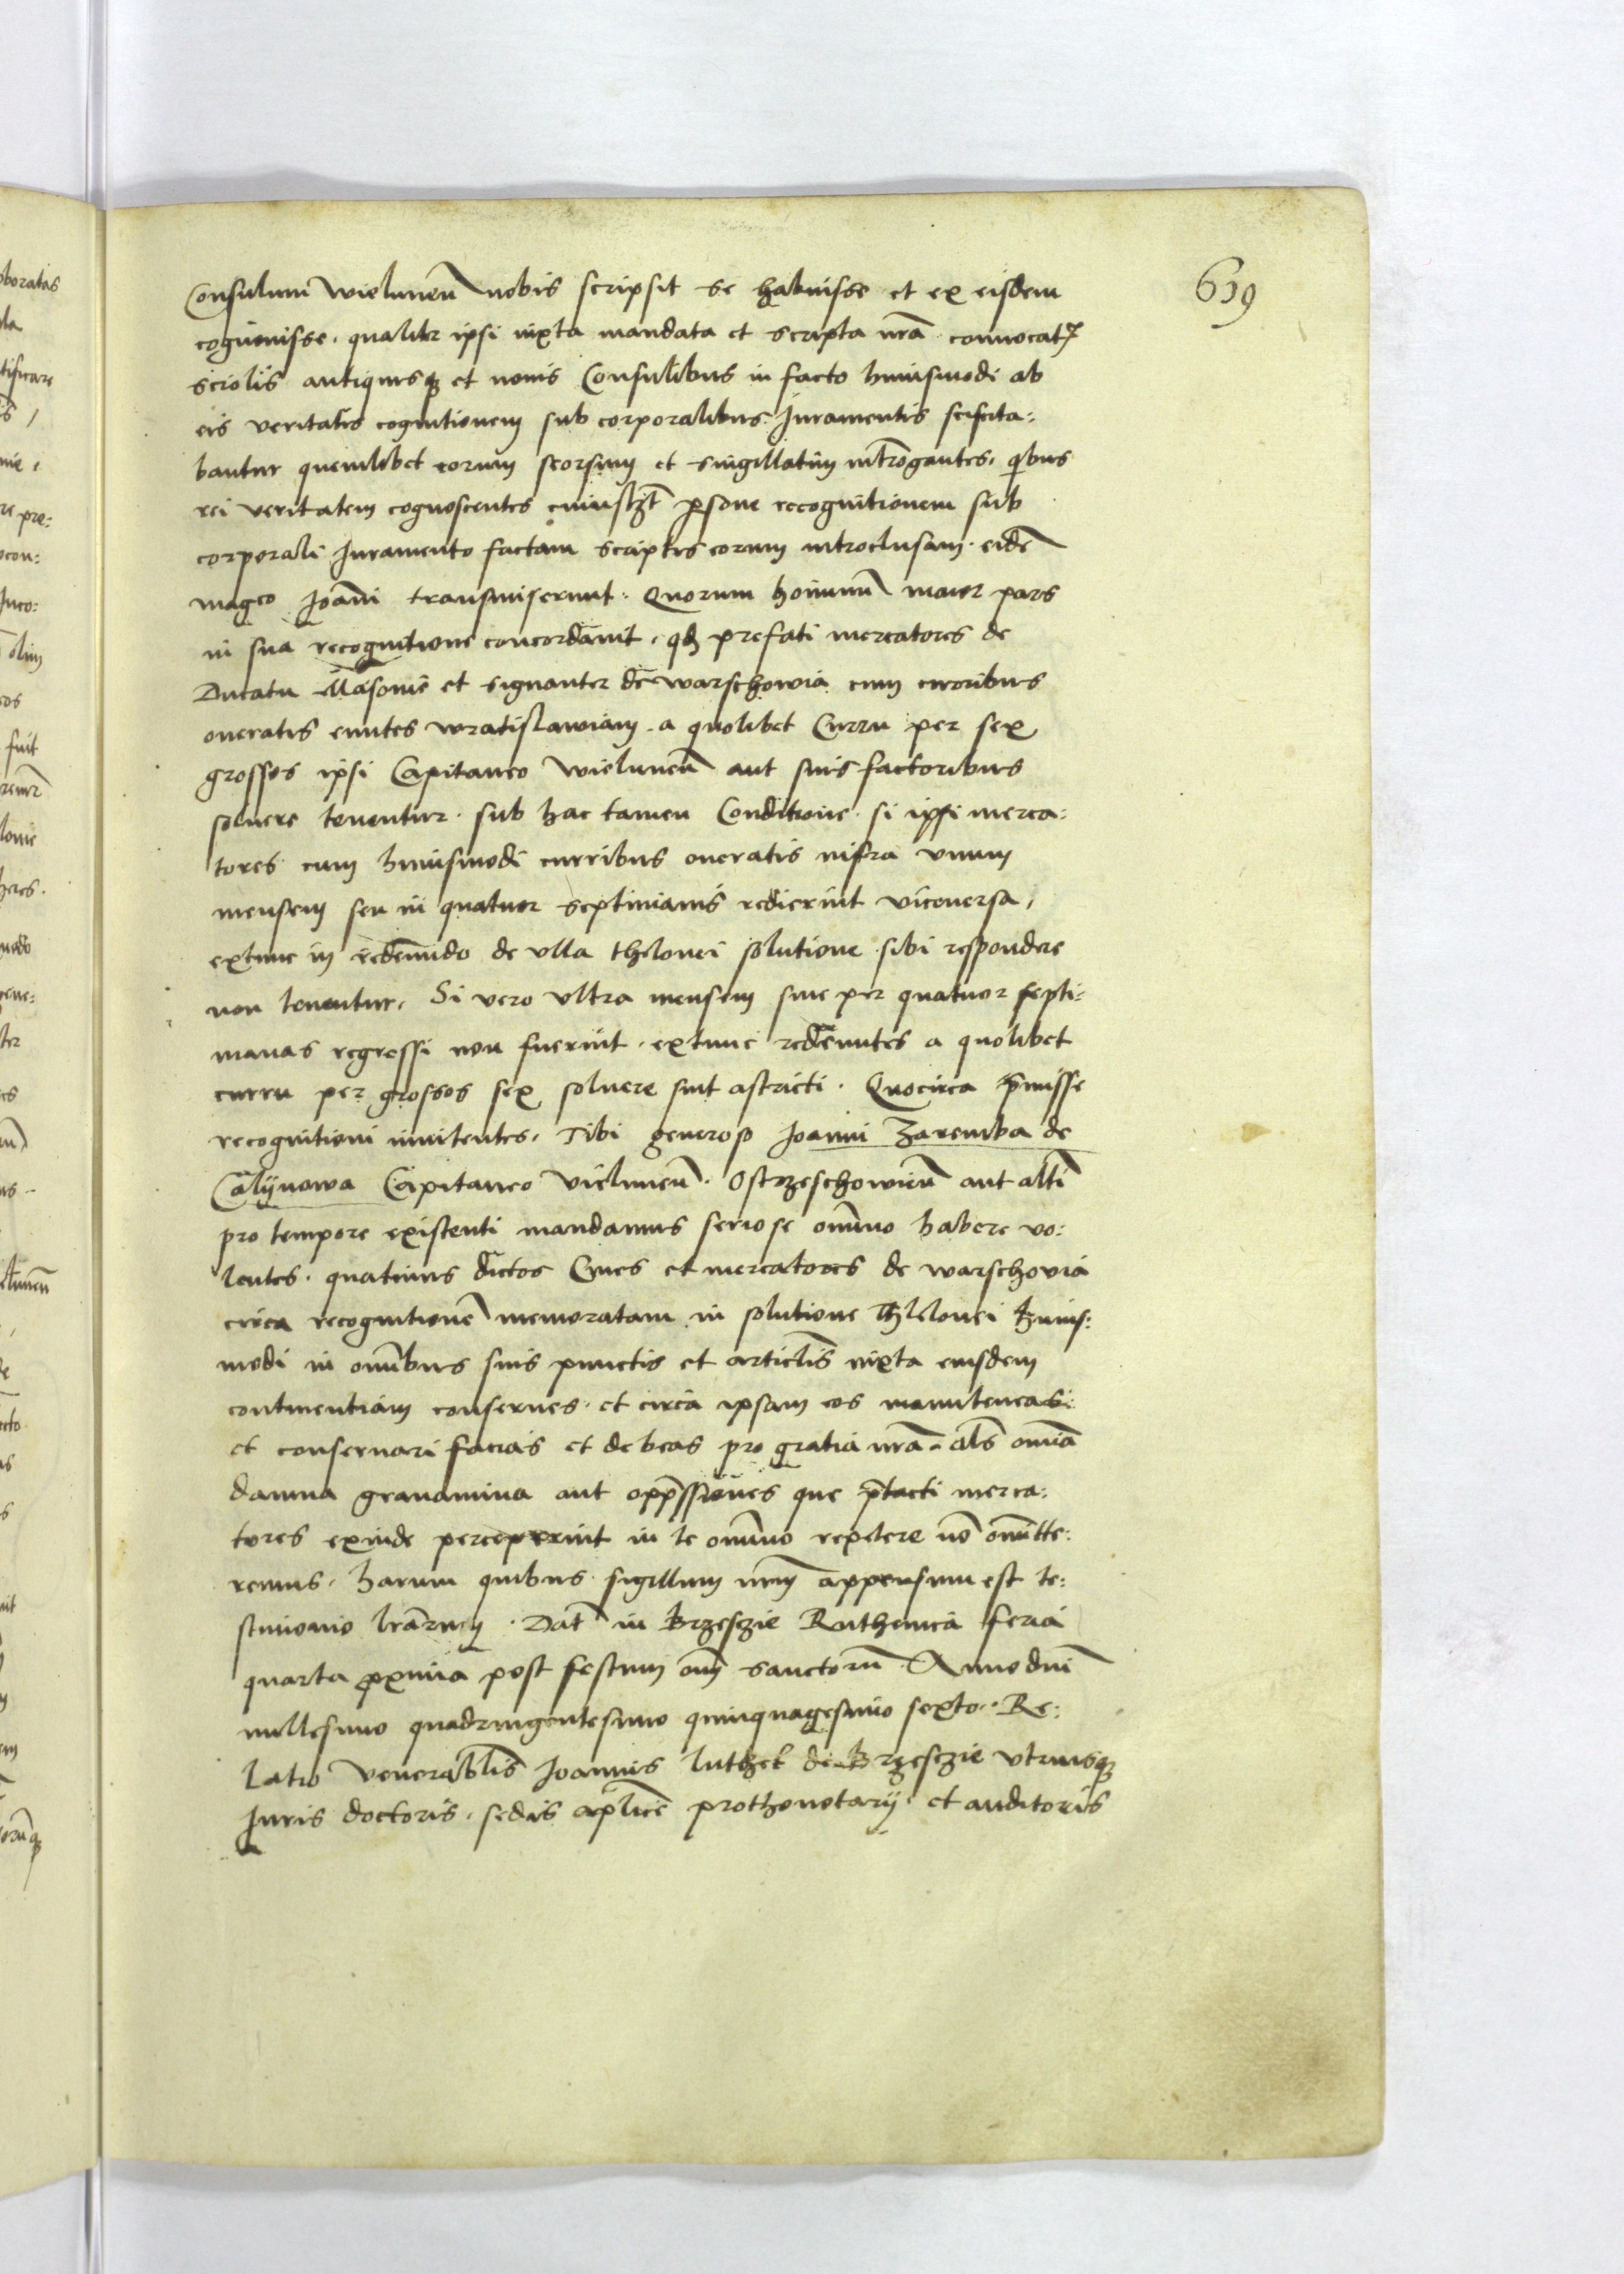 639
Consulum wielunen̄ nobis scripsit se habuisse et ex eisdem
cognouisse. qualitr ipsi iuxta mandata et scripta nr̄a conuocat
sciolis antiquisq3 et nouis Consulibus in facto huiusmodi ab
eis veritatis cognitionem sub corporalibus Iuramentis sciscita:
bantur quemlibet eorum seorsum et singillatim intr̄ogantes. qibus
rei veritatem cognoscentes cuiuslȝt psone recognitionem sub
corporali Iuramento factam scriptis eorum introclusam. eidē
magco Joān̄i transmiserunt. Quorum hominū maior pars
in sua recognitione concordauit. qd prefati mercatores de
Ducatu Masouie et signanter de warschowia cum curribus
oneratis euntes wratislawiam. a quolibet Curru per sex
grossos ipsi Capitaneo wielunen̄ aut suis factoribus
soluere tenentur. sub hac tamen Conditione. si ipsi merca:
tores cum huiusmodi curribus oneratis infra vnum
mensem seu in quatuor septimanis redierint viceuersa,
extunc in redeundo de vlla thelonei solutione sibi respondere
non tenentur. Si vero vltra mensem siue per quatuor septi:
manas regressi non fuerint. extunc redeuntes a quolibet
curru per grossos sex soluere sint astricti. Quocirca p̄misse
recognitioni innitentes. Tibi generoso Joanni Zaremba de
Calynowa Capitaneo vielunen̄. Ostrzeschowien̄ aut altī
pro tempore existenti mandamus seriose omnīno habere vo:
lentes. quatinus dictos Ciues et mercatores de warschovia
circa recognitionē memoratam in solutione Thelonei huius:
modi in omībus suis punctis et articlīs iuxta eiusdem
continentiam conserues. et circa ipsam eos manuteneas:
et conseruari facias et debeas pro gratia nr̄a. als omīa
damna grauamina aut opp̄ssiones que p̄tacti merca:
tores exinde perceperint in te omnīno repetere nō omitte:
remus. harum quibus sigillum nrm̄ appensum est te:
stimonio lrārum. Dat̄ in Brzesczie Ruthenica feria
quarta p̄xima post festum om̄ sanctorū. Anno dnī
millesimo quadringentesimo quinquagesimo sexto. Re:
latio venerablīs Joannis luthek de Brzesczie vtriusq3
Iuris doctoris. sedis aplīce prothonotarij. et auditoris